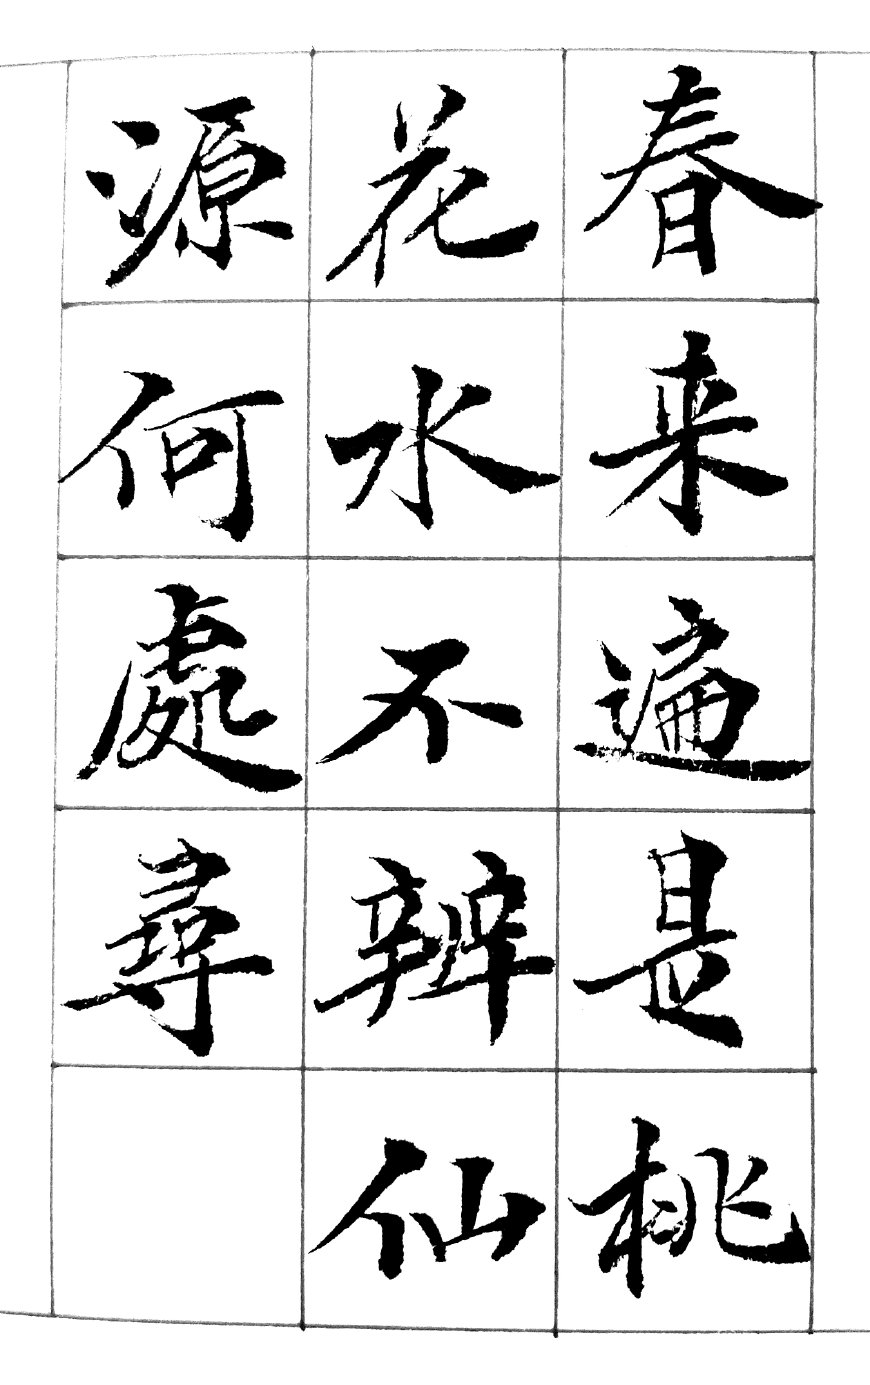 春来遍是桃
花水不辨仙
源何處尋